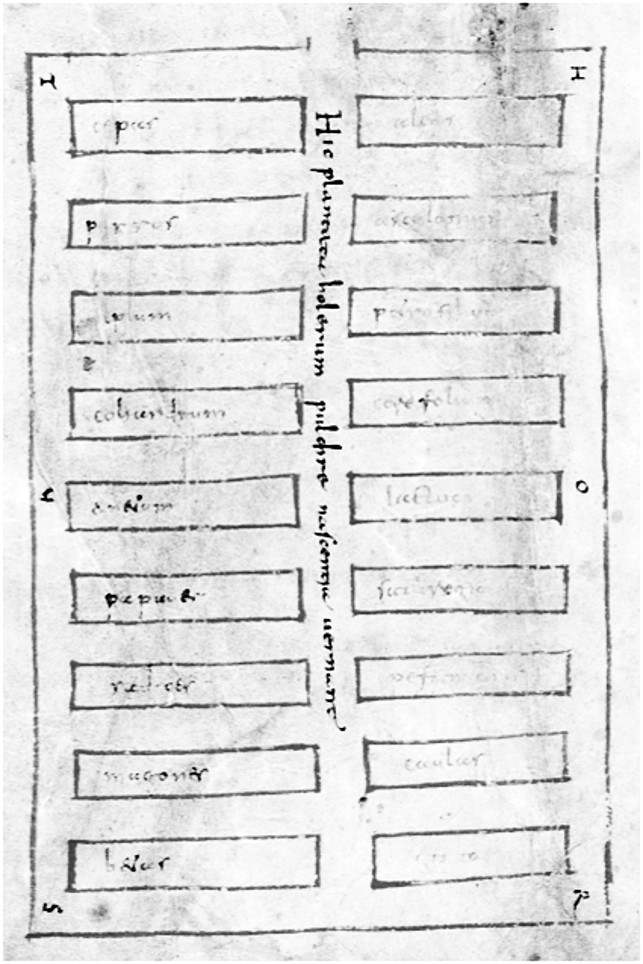 T
H
cepas
alias
Hic plantata holerum pulchre nascentia uernant
porros
ascolonias
apium
petrosilium
coliandrum
cerefolium
anetum
lactuca
U
O
papauer
sataregia
radices
magones
caulas
betas
S
R